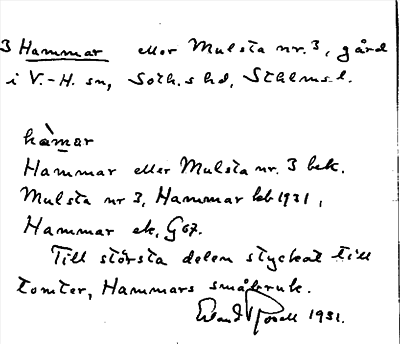 3 Hammar eller Mulsta nr. 3, gård
i V.-H. sn, Soth.s hd, Sthlms l.
hàmar
Hammar eller Mulsta nr. 3 bek.
Mulsta nr 3, Hammar lb 1931,
Hammar ek, G 67.
Till största delen styckat till
tomter, Hammars småbruk.
Erland Rosell 1931.